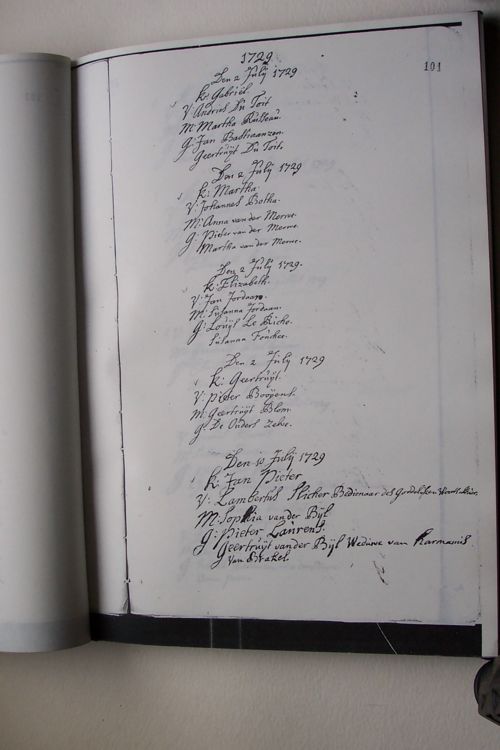 1729
101
Den 2 Julÿ 1729
K: Gabriël.
V: Andries Du Toit
M: Martha Rousseau.
G: Jan Bastiaanzen.
Geertruÿt Du Toit.
Den 2 Julÿ 1729
K: Martha.
V: Johannes Botha.
M: Anna van der Merwe.
G: Pieter van der Merwe.
Martha van der Merwe.
Den 2 Julÿ 1729.
K: Elizabeth.
V: Jan Jordaan.
M: Susanna Jordaan.
G: Louÿs Le Riche.
Susanna Fouchee.
Den 2 Julÿ 1729
K: Geertruÿt.
V: Pieter Booÿens.
M: Geertruÿt Blom.
G: De Ouders Zelve.
Den 10 Julÿ 1729
K: Jan Pieter
V: Lambertus Slicher Bedienaar des Goddelijken Woords
M: Sophia van der Bÿl
G: Pieter Laurens.
Geertruÿt van der Bÿl Weduwe van Harmanus
Van Brakel.